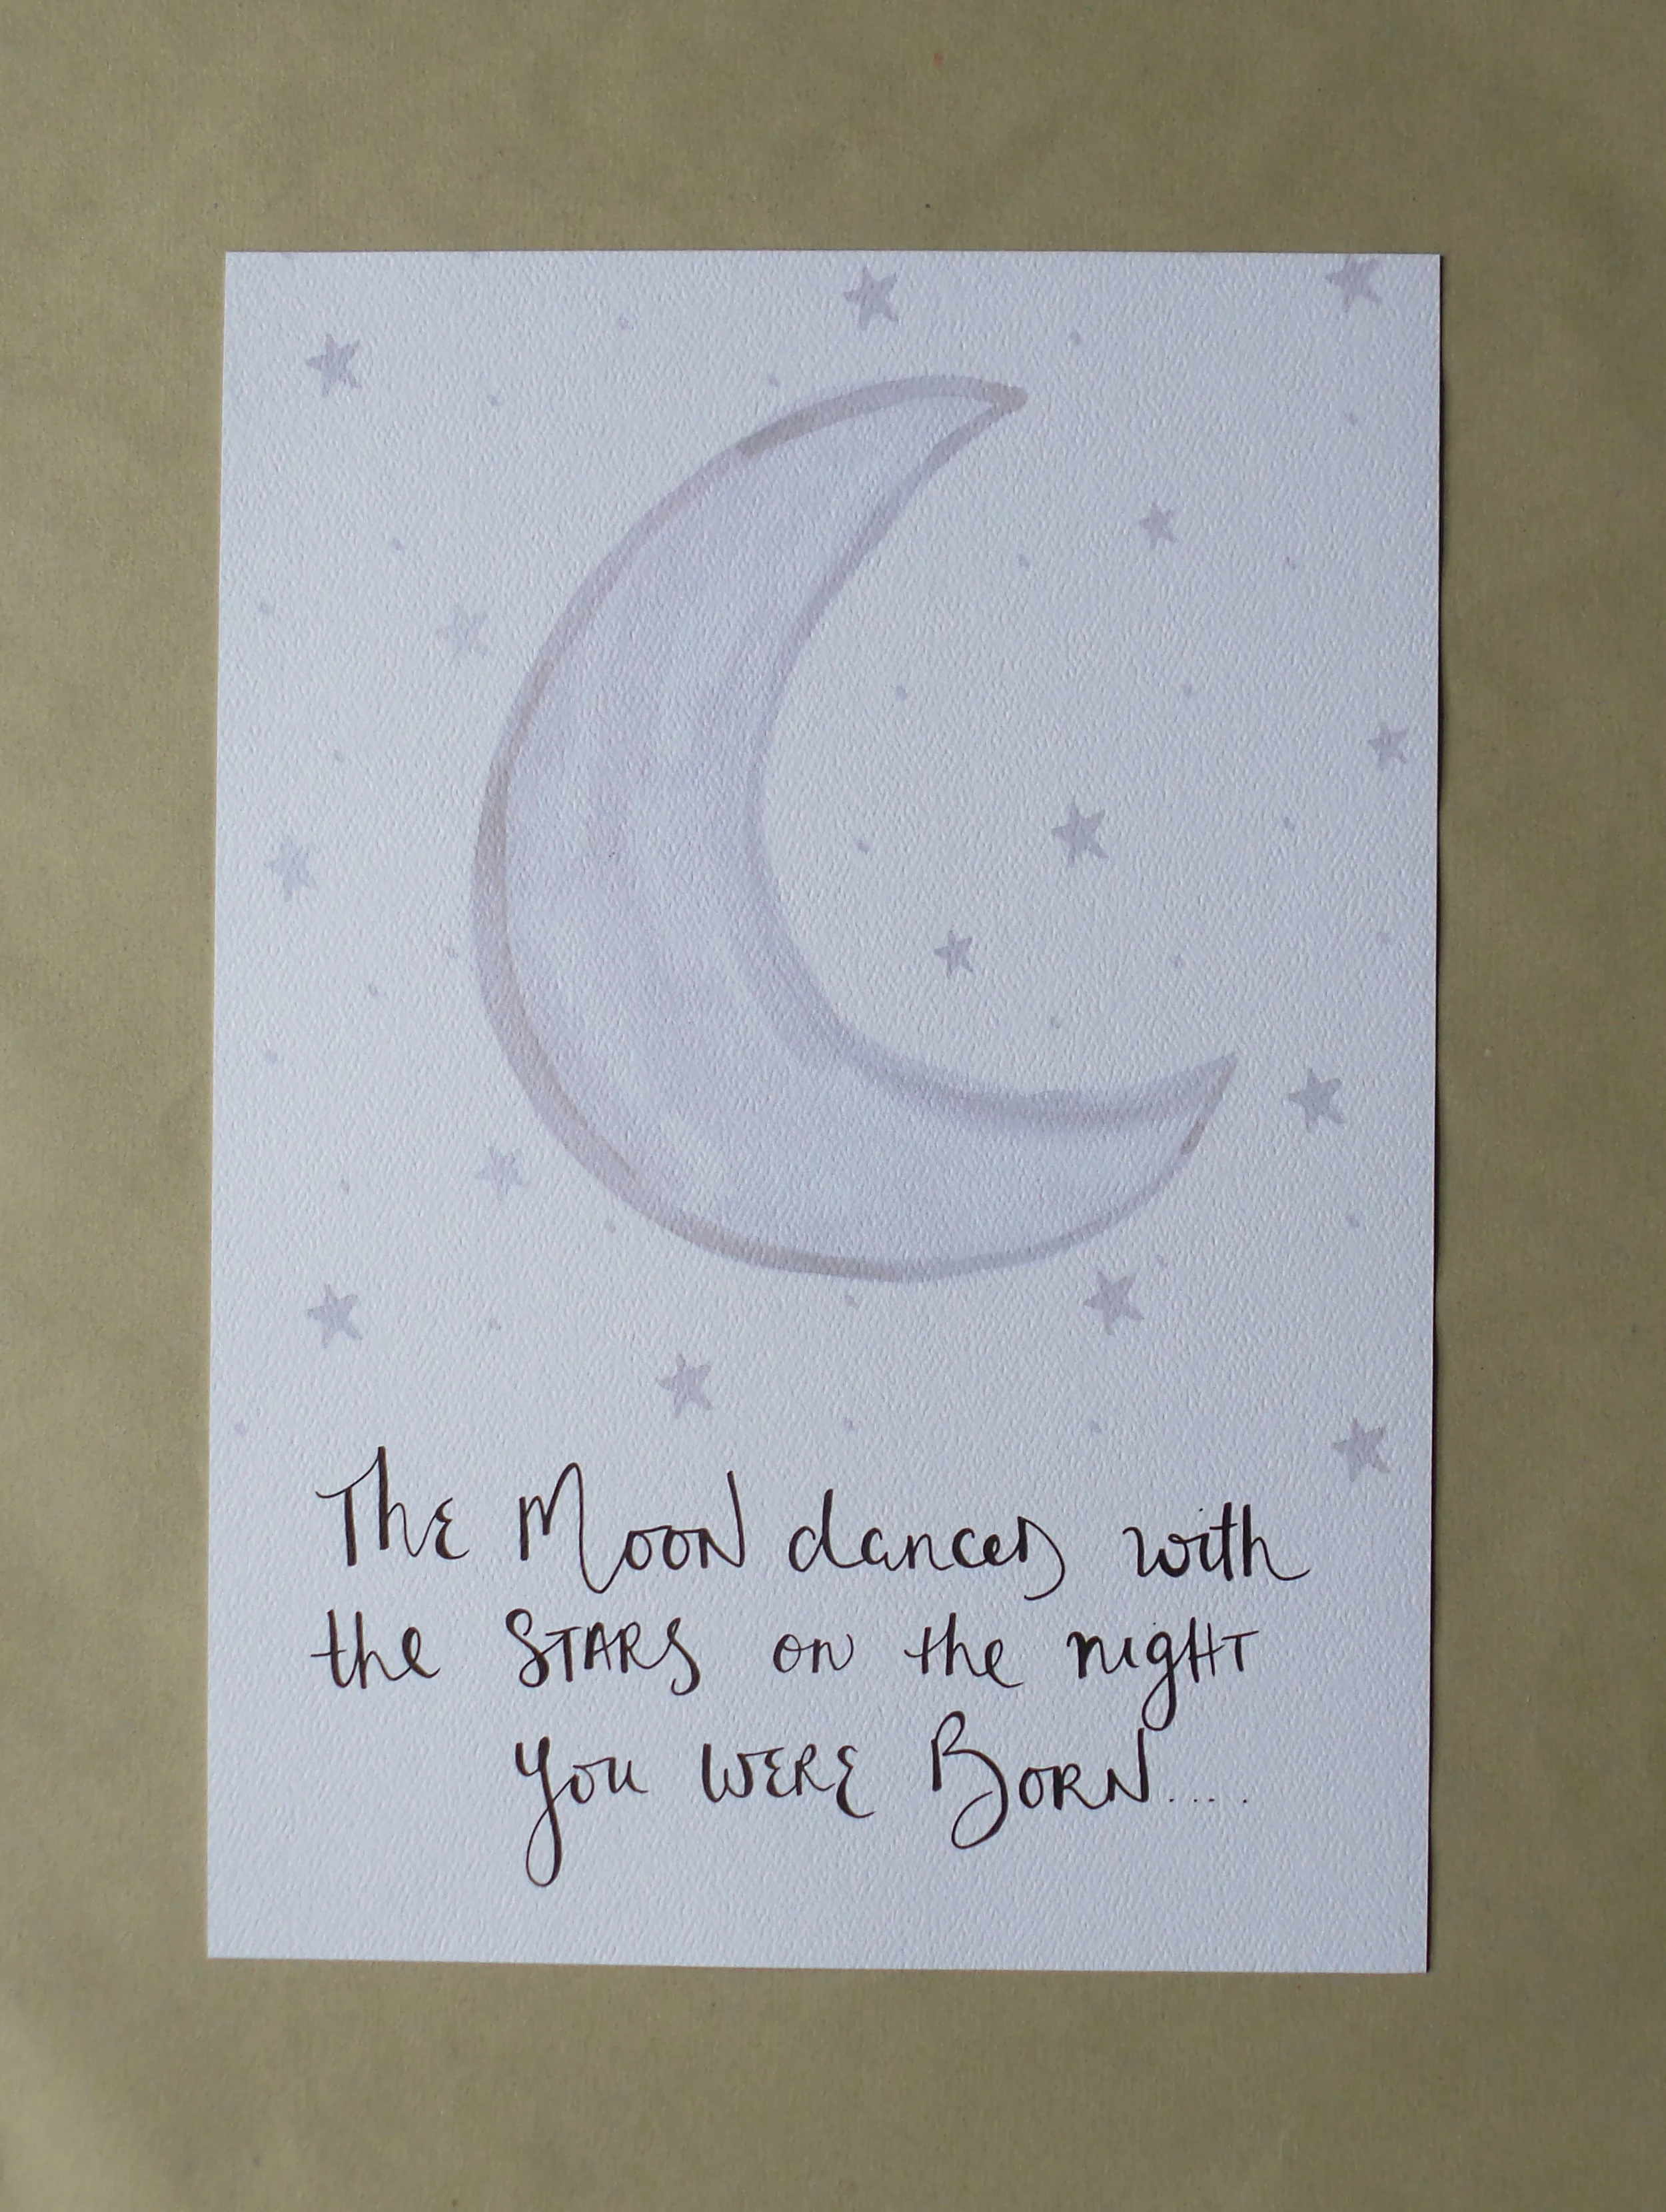 The Moon dances with
the STARS on the night
you WERE BORN....